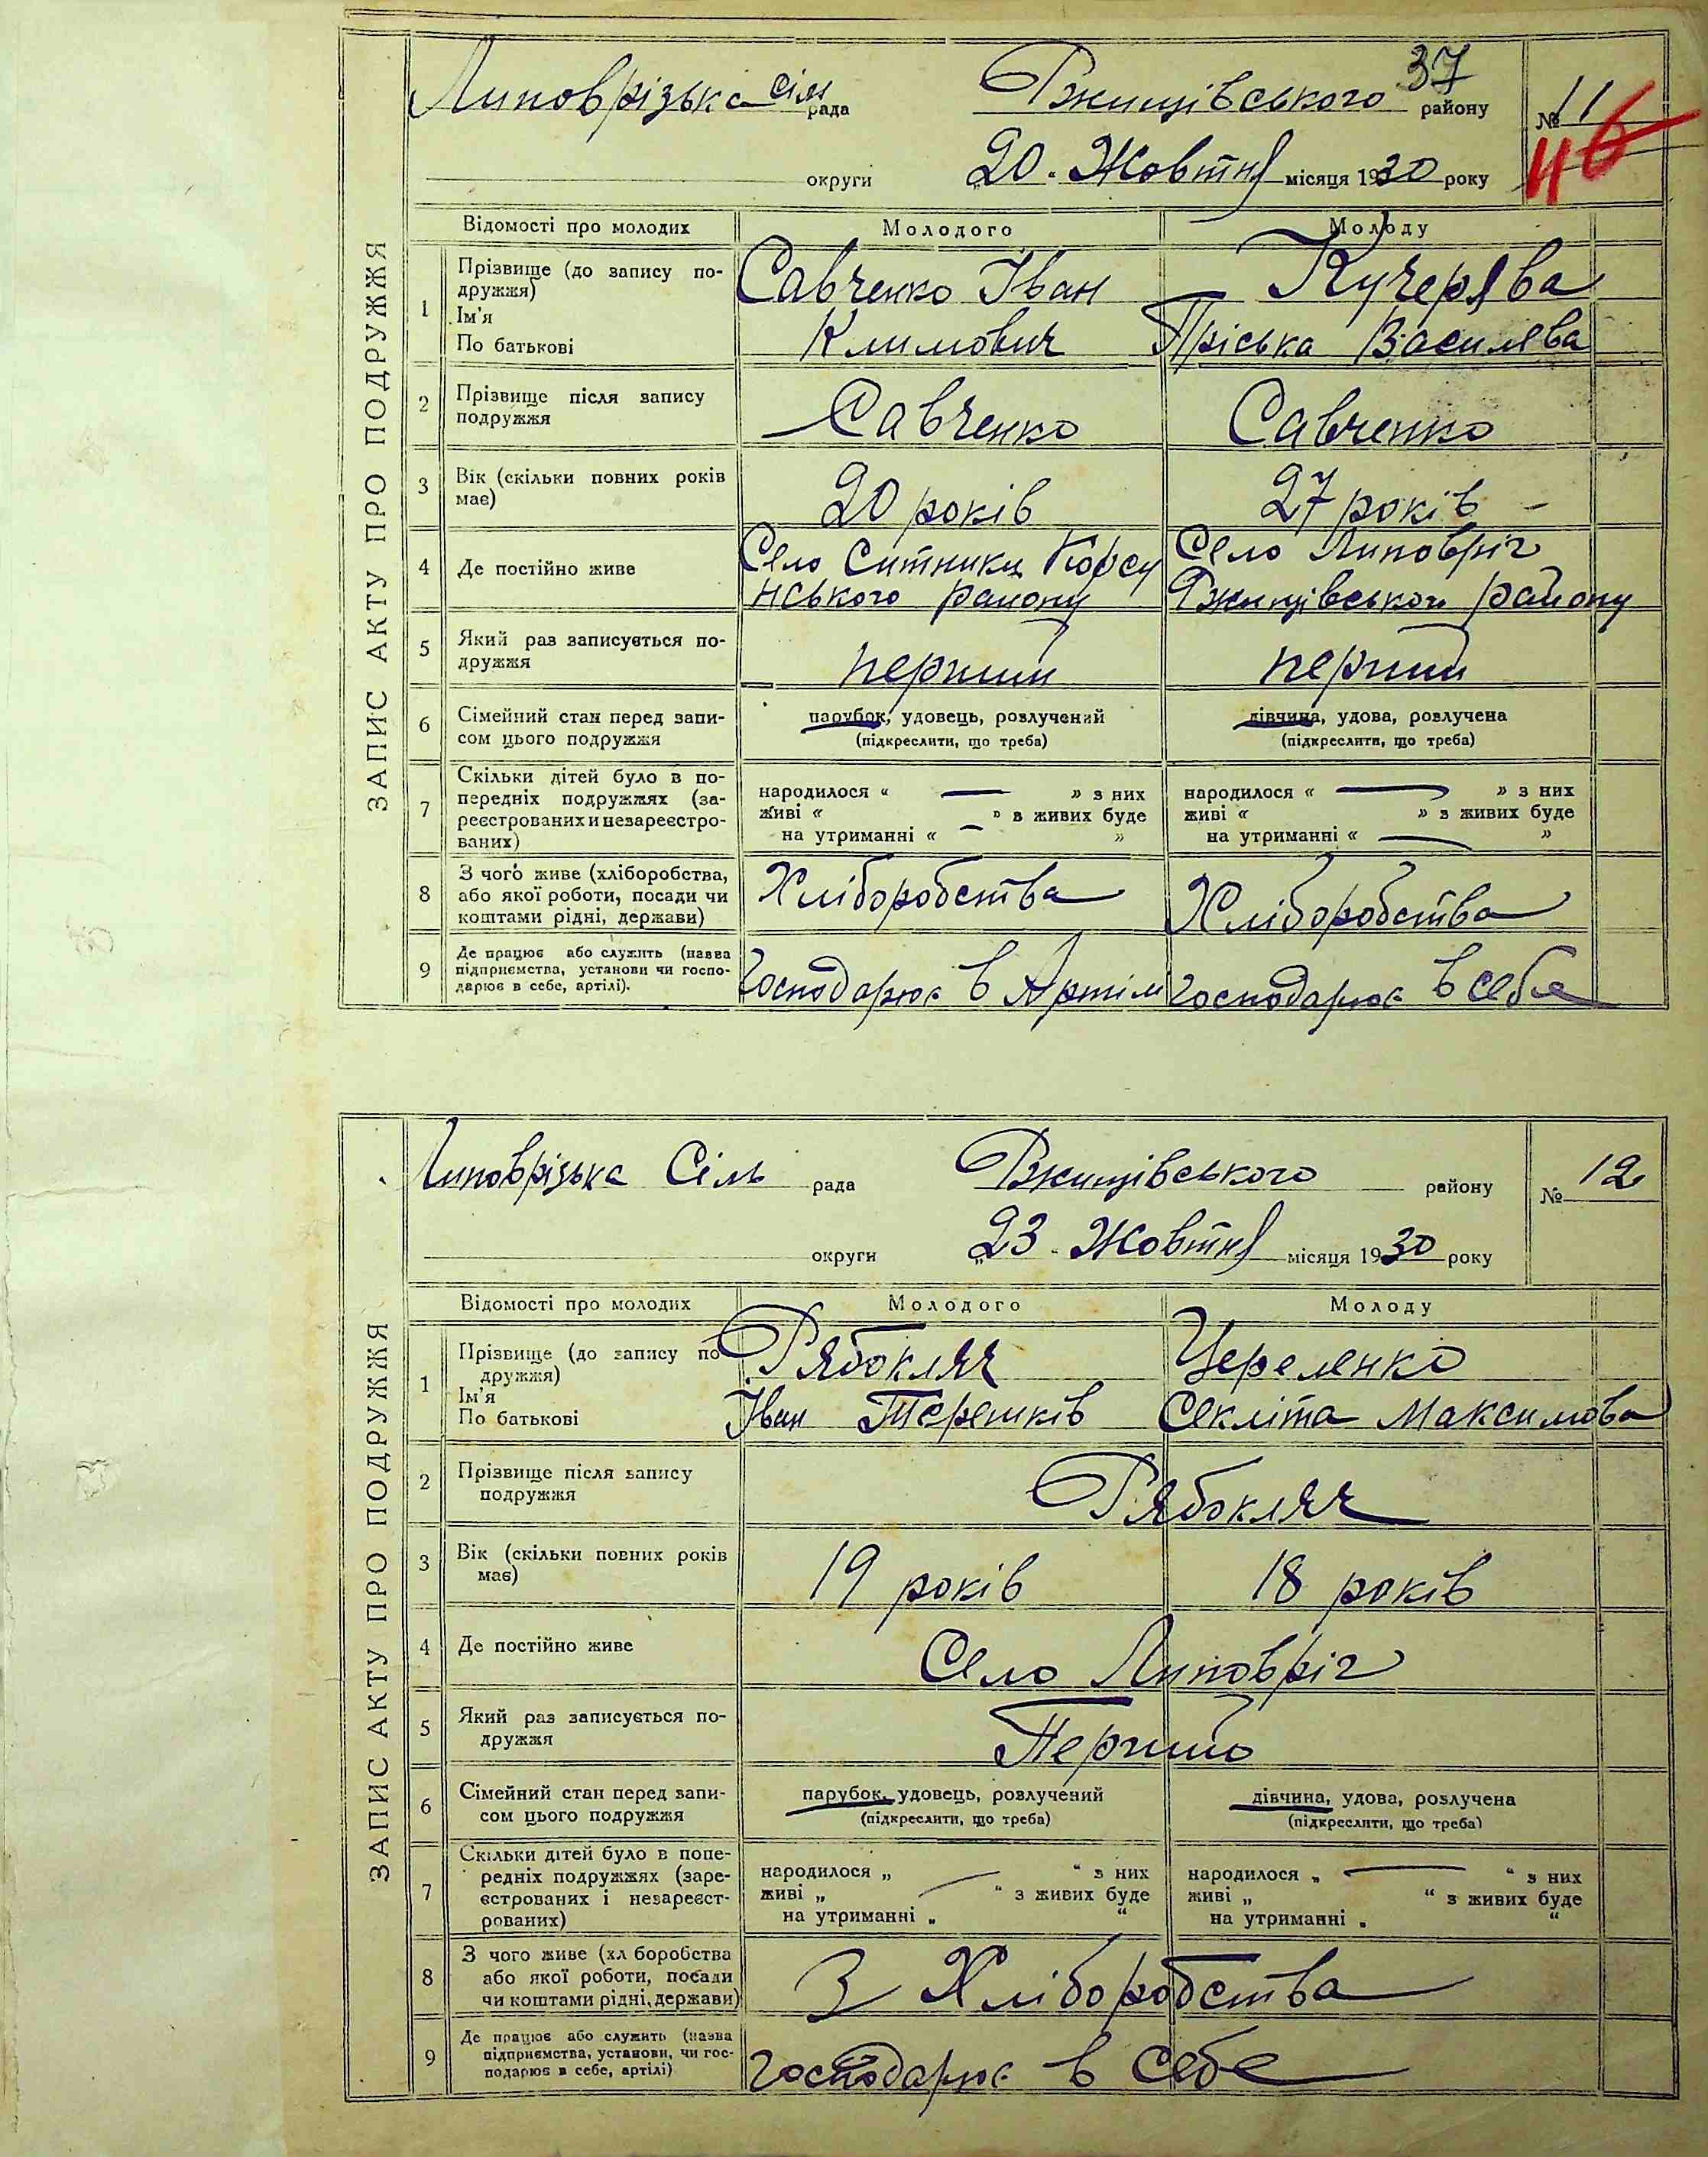 37
Липоврізька сіль рада Ржищівського району № 11
46
округи „20 Жовтня місяця 1930 року
ЗАПИС АКТУ ПРО ПОДРУЖЖЯ
Відомості про молодих Молодого Молоду
1 Прізвище (до запису по- Савченко Іван Кучерява
дружжя)
Ім'я
По батькові Климович Пріська Василева
2 Прізвище після запису Савченко Савченко
подружжя
3 Вік (скільки повних років 20 років 27 років
має)
4 Де постійно живе Село Ситники Корсу Село Липовріг
нського району Ржищівського району
5 Який раз записується по- перший перший
дружжя
6 Сімейний стан перед запи- парубок, удовець, розлучений дівчина, удова, розлучена
сом цього подружжя (підкреслити, що треба) (підкреслити, що треба)
7 Скільки дітей було в по- народилося « — » з них народилося « — » з них
передніх подружжях (за- живі « » в живих буде живі « » з живих буде
реєстрованих и незареєстро- на утриманні « — » на утриманні « — »
ваних)
8 З чого живе (хліборобства, Хліборобства Хліборобства
або якої роботи, посади чи
коштами рідні, держави)
9 Де працює або служить (назва Господарює в Артіли господарює в себе
підприємства, установи чи госпо-
дарює в себе, артілі).
Липоврізька Сіль рада Ржищівського району № 12
округи „23 Жовтня місяця 1930 року
ЗАПИС АКТУ ПРО ПОДРУЖЖЯ
Відомості про молодих Молодого Молоду
1 Прізвище (до запису по- Рябокляч Череленко
дружжя)
Ім'я
По батькові Іван Терешків Секліта Максимова
2 Прізвище після запису Рябокляч
подружжя
3 Вік (скільки повних років 19 років 18 років
має)
4 Де постійно живе Село Липовріг
5 Який раз записується по- Перший
дружжя
6 Сімейний стан перед запи- парубок, удовець, розлучений дівчина, удова, розлучена
сом цього подружжя (підкреслити, що треба) (підкреслити, що треба)
7 Скільки дітей було в попе- народилося „ — “ з них народилося „ — “ з них
редніх подружжях (заре- живі „ — “ з живих буде живі „ “ з живих буде
єстрованих і незареєст- на утриманні „ “ на утриманні „ “
рованих)
8 З чого живе (хл боробства З Хліборобства
або якої роботи, посади
чи коштами рідні, держави)
9 Де працює або служить (назва господарює в себе
підприємства, установи, чи гос-
подарює в себе, артілі)